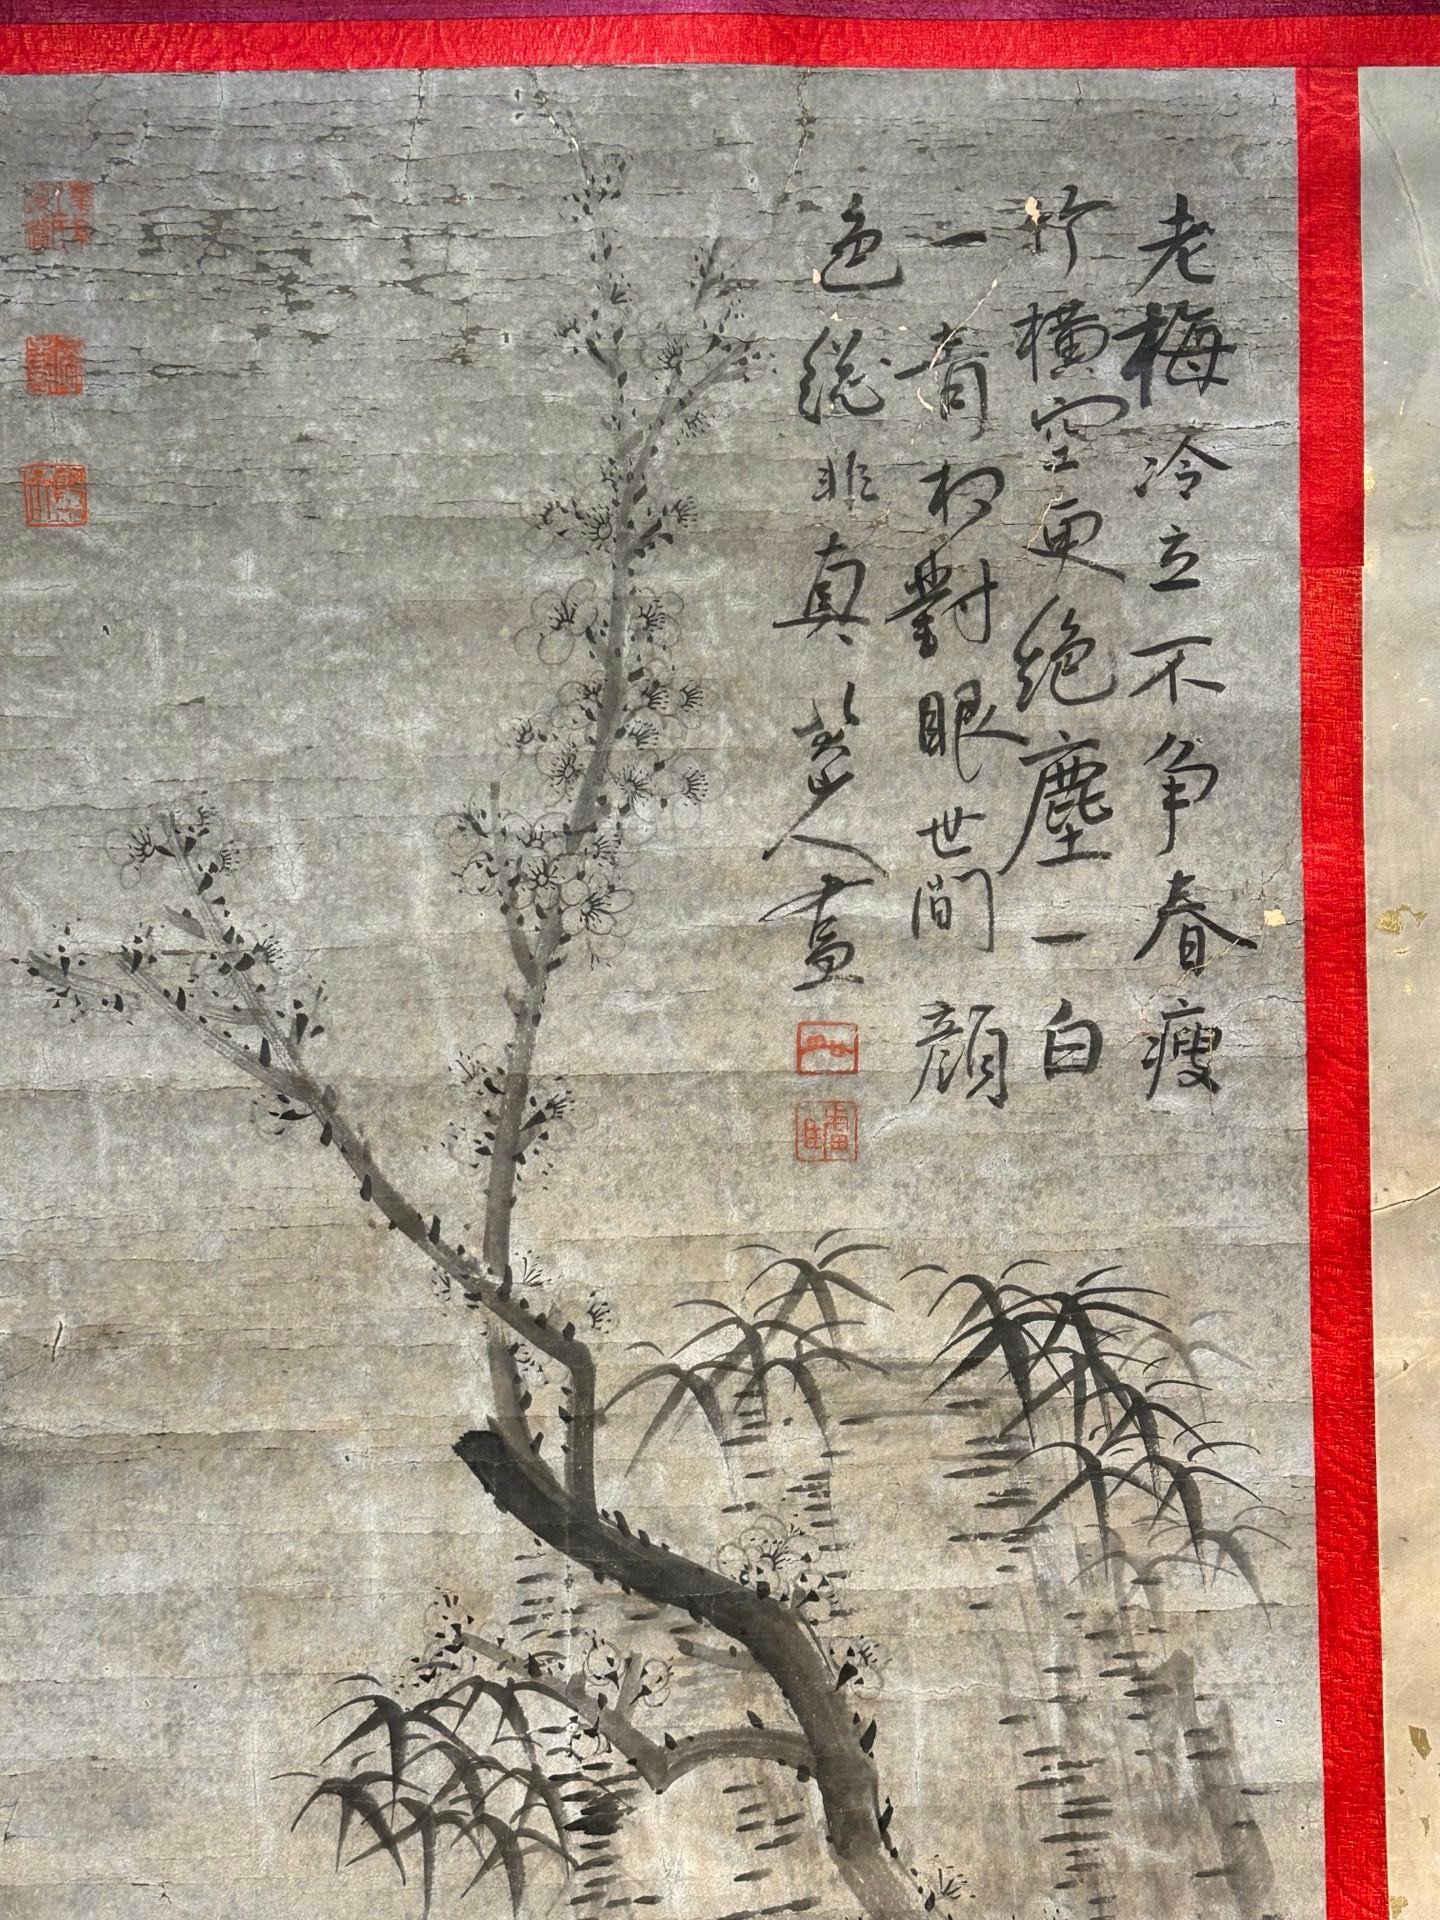 老梅冷立不争春瘦
竹橫空更绝塵一白
一青相對眼世間顔
色總非真八大山人畫